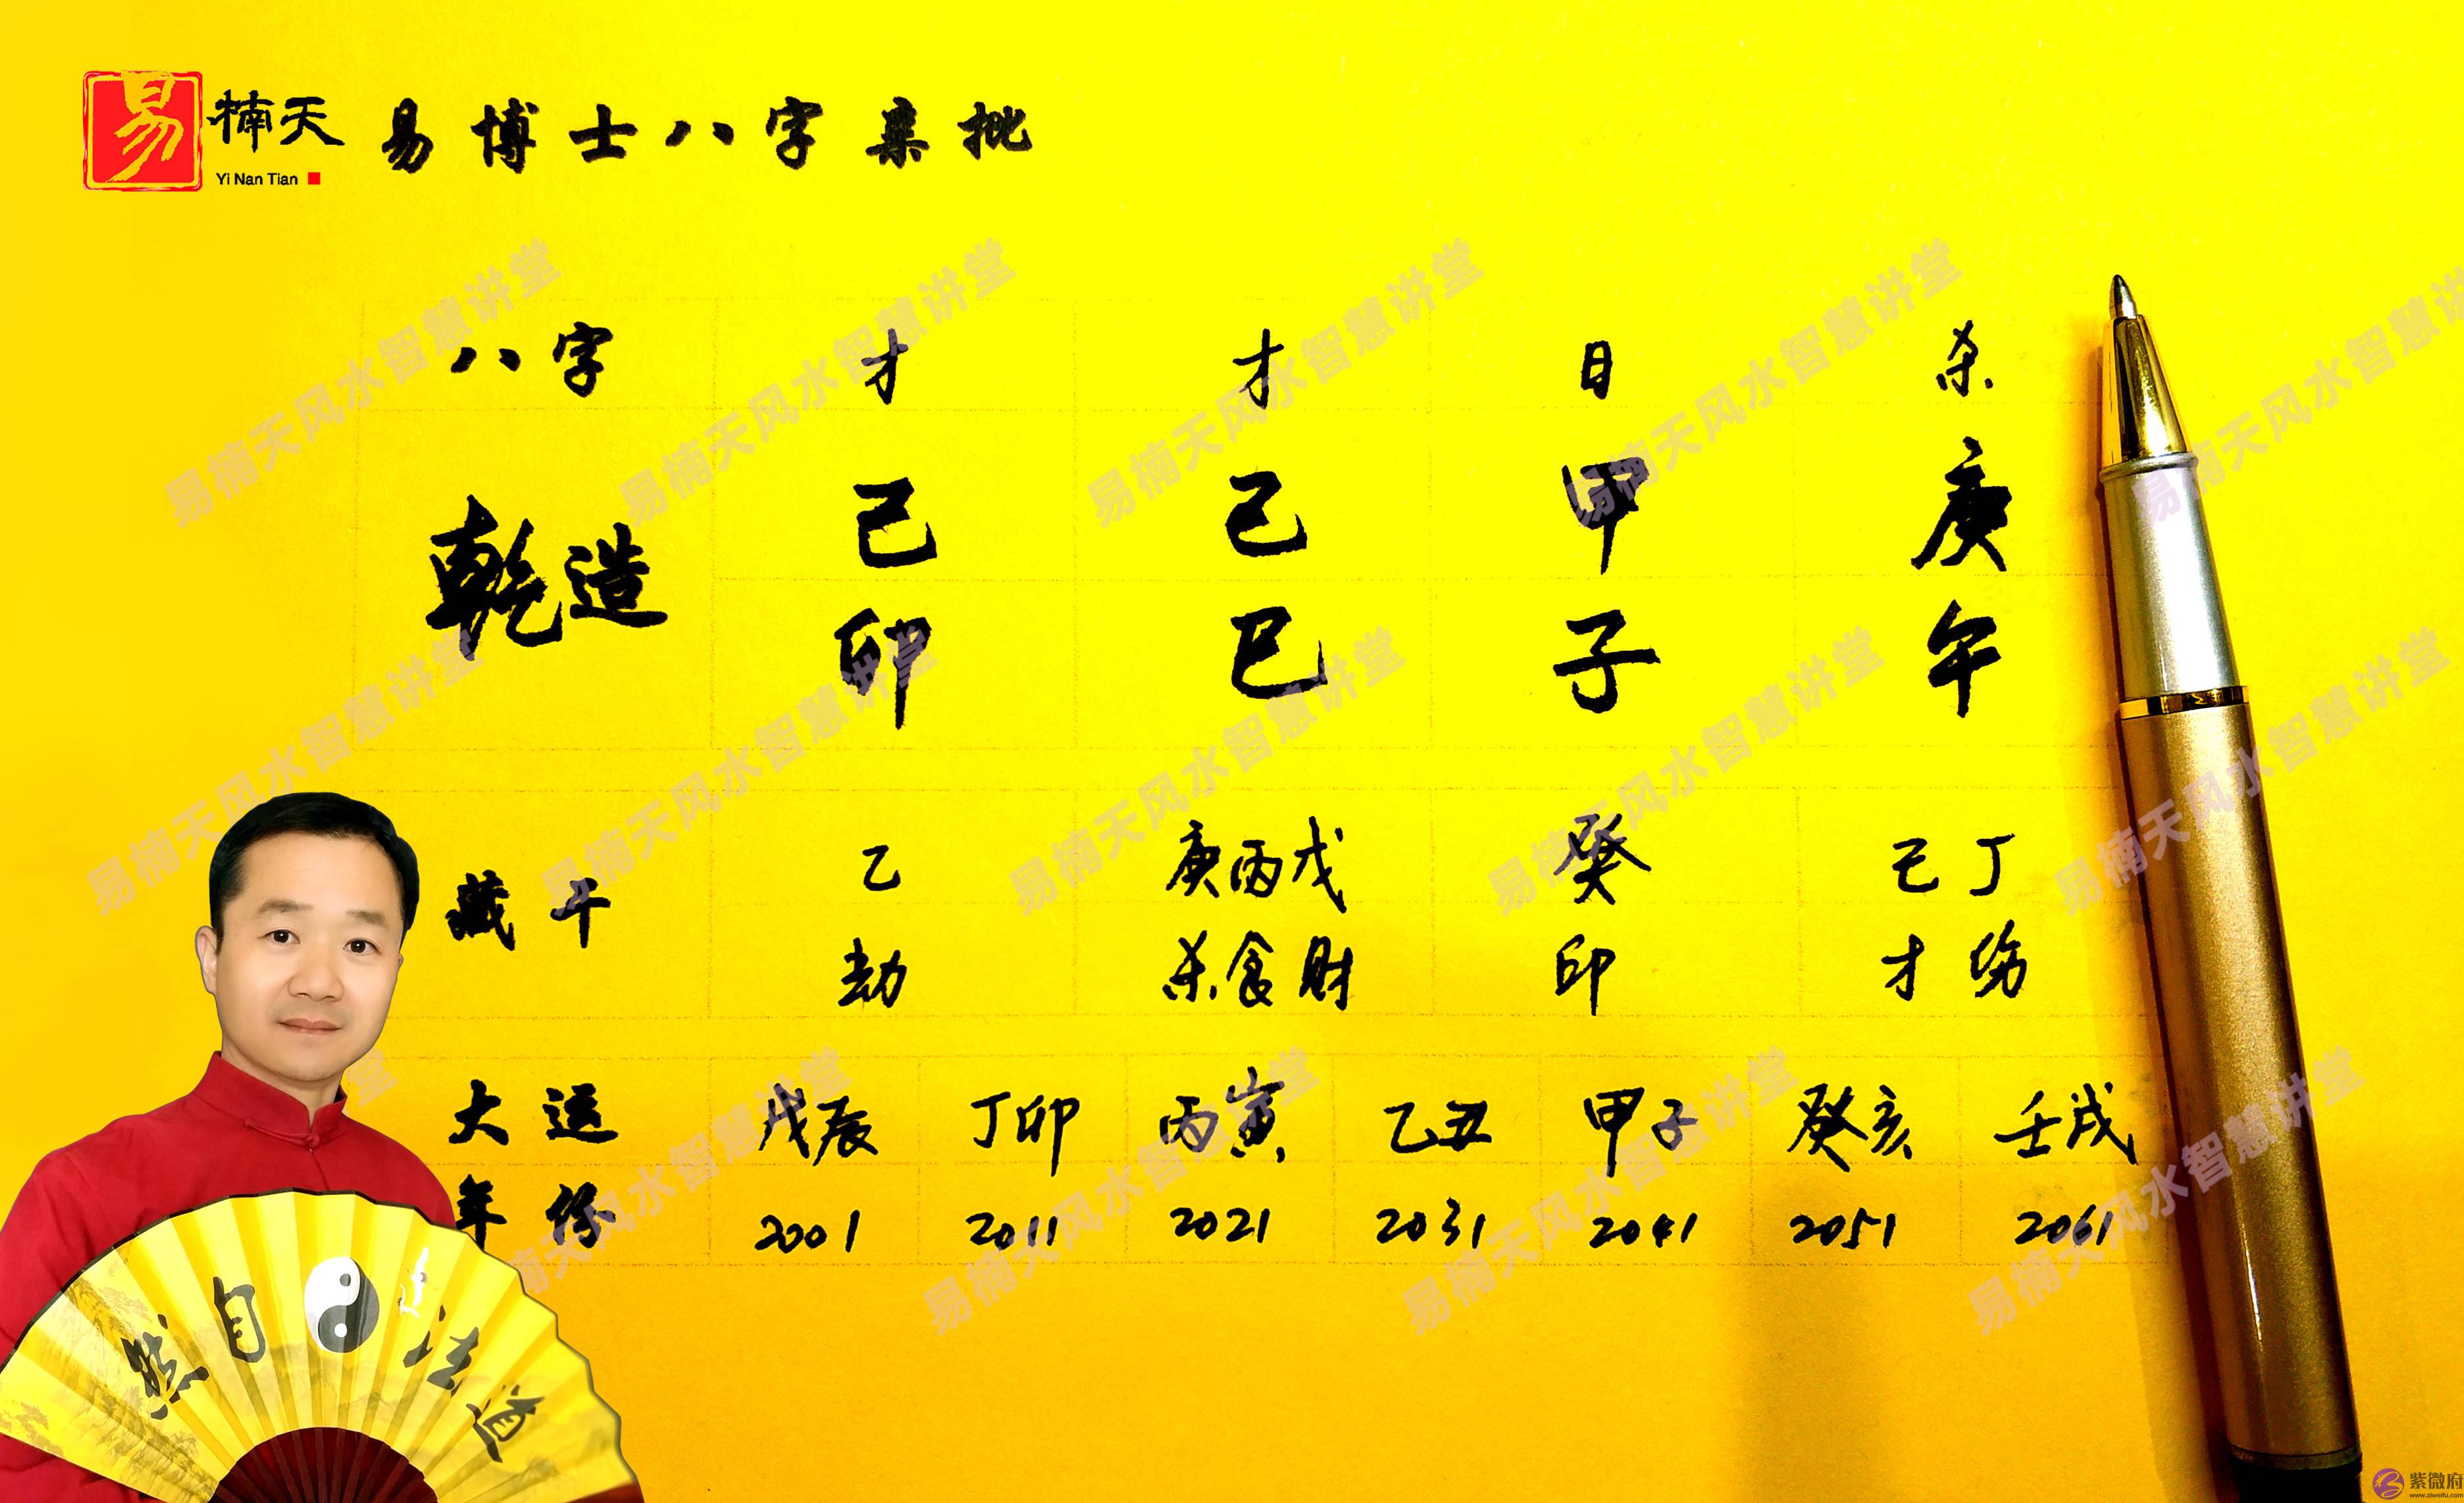 易 楠天 易博士八字案批
Yi Nan Tian
八字 才 才 日 杀
乾造 己 己 甲 庚
卯 巳 子 午
藏干 乙 庚丙戊 癸 己丁
劫 杀食财 印 才伤
大运 戊辰 丁卯 丙寅 乙丑 甲子 癸亥 壬戌
年份 2001 2011 2021 2031 2041 2051 2061
然自法道
易楠天风水智慧讲堂
紫微府
www.ziweifu.com